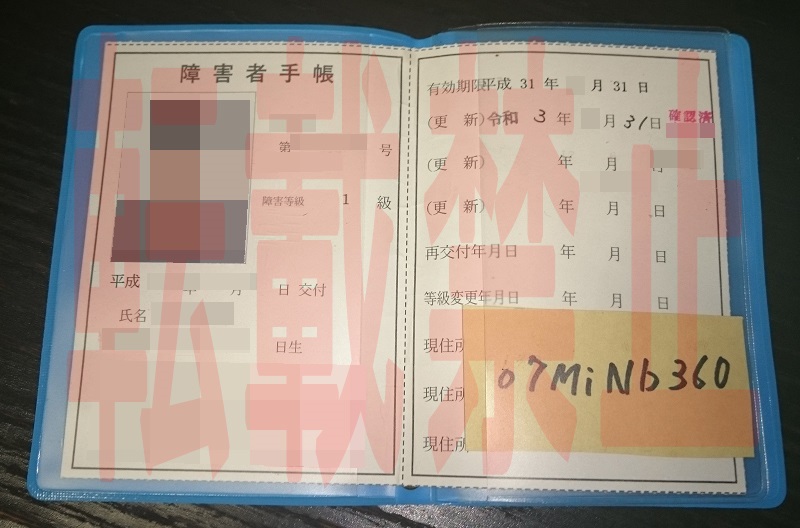 障害者手帳
第 号
障害等級 1 級
平成 年 月 日 交付
氏名
日生
有効期限平成 31 年 月 31 日
(更 新)令和 3 年 月 31日 確認済
(更 新) 年 月 日
(更 新) 年 月 日
再交付年月日 年 月 日
等級変更年月日 年 月 日
現住所
現住所
現住所
07MiNb360
転載禁止